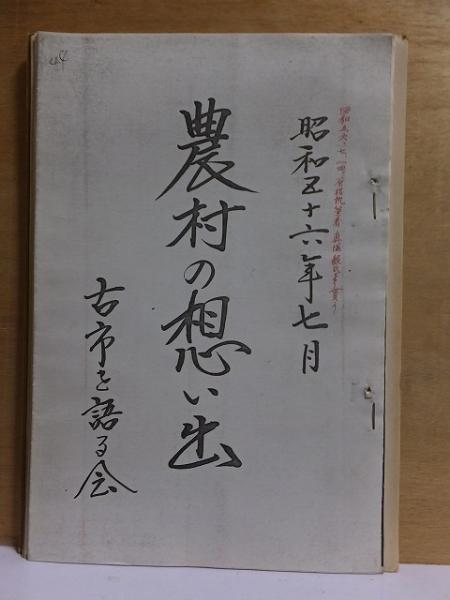 昭和五十六年七月
農村の想い出
古市を語る会